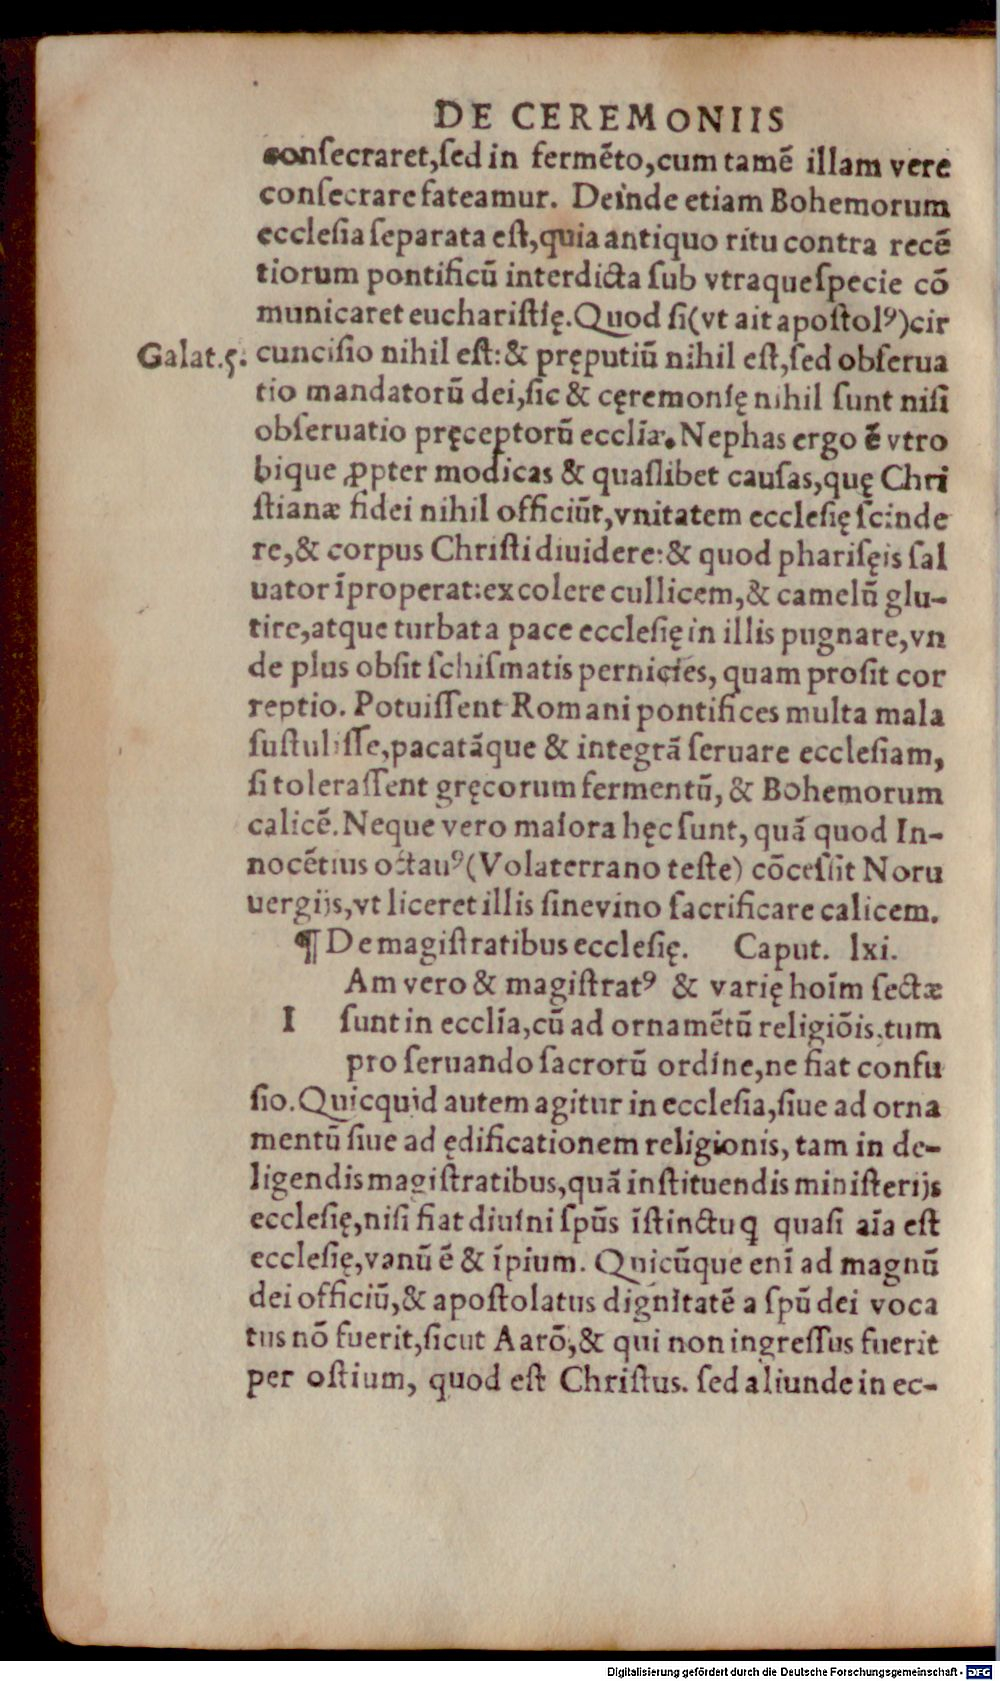 DE CEREMONIIS
conſecraret,ſed in fermẽto,cum tamẽ illam vere
conſecrare fateamur. Deinde etiam Bohemorum
eccleſia ſeparata eſt,quia antiquo ritu contra recẽ
tiorum pontificũ interdicta ſub vtraque ſpecie cõ
municaret euchariſtię.Quod ſi(vt ait apoſtolꝰ)cir
Galat.5. cunciſio nihil eſt:& pręputiũ nihil eſt,ſed obſerua
tio mandatorũ dei,ſic & cęremonię nihil ſunt niſi
obſeruatio pręceptorũ eccl̃iæ.Nephas ergo ẽ vtro
bique ꝓpter modicas & quaſlibet cauſas,quę Chri
ſtianæ fidei nihil officiũt,vnitatem eccleſię ſcinde
re,& corpus Chriſti diuidere:& quod phariſęis ſal
uator ĩproperat:excolere cullicem,& camelũ glu-
tire,atque turbata pace eccleſię in illis pugnare,vn
de plus obſit ſchiſmatis pernicies, quam proſit cor
reptio. Potuiſſent Romani pontifices multa mala
ſuſtuliſſe,pacatãque & integrã ſeruare eccleſiam,
ſi toleraſſent gręcorum fermentũ, & Bohemorum
calicẽ.Neque vero maiora hęc ſunt, quã quod In-
nocẽtius octauꝰ(Volaterrano teſte) cõceſſit Noru
uergijs,vt liceret illis ſine vino ſacrificare calicem.
¶ De magiſtratibus eccleſię. Caput. lxi.
Am vero & magiſtratꝰ & varię hoĩm ſectæ
I ſunt in eccl̃ia,cũ ad ornamẽtũ religiõis,tum
pro ſeruando ſacrorũ ordine,ne fiat confu
ſio.Quicquid autem agitur in eccleſia,ſiue ad orna
mentũ ſiue ad ędificationem religionis, tam in de-
ligendis magiſtratibus,quã inſtituendis miniſterijs
eccleſię,niſi fiat diuini ſpũs ĩſtinctu q̃ quaſi aĩa eſt
eccleſię,vanũ ẽ & ĩpium. Quicũque enĩ ad magnũ
dei officiũ,& apoſtolatus dignitatẽ a ſpũ dei voca
tus nõ fuerit,ſicut Aarõ,& qui non ingreſſus fuerit
per oſtium, quod eſt Chriſtus. ſed aliunde in ec-
Digitalisierung gefördert durch die Deutsche Forschungsgemeinschaft - DFG